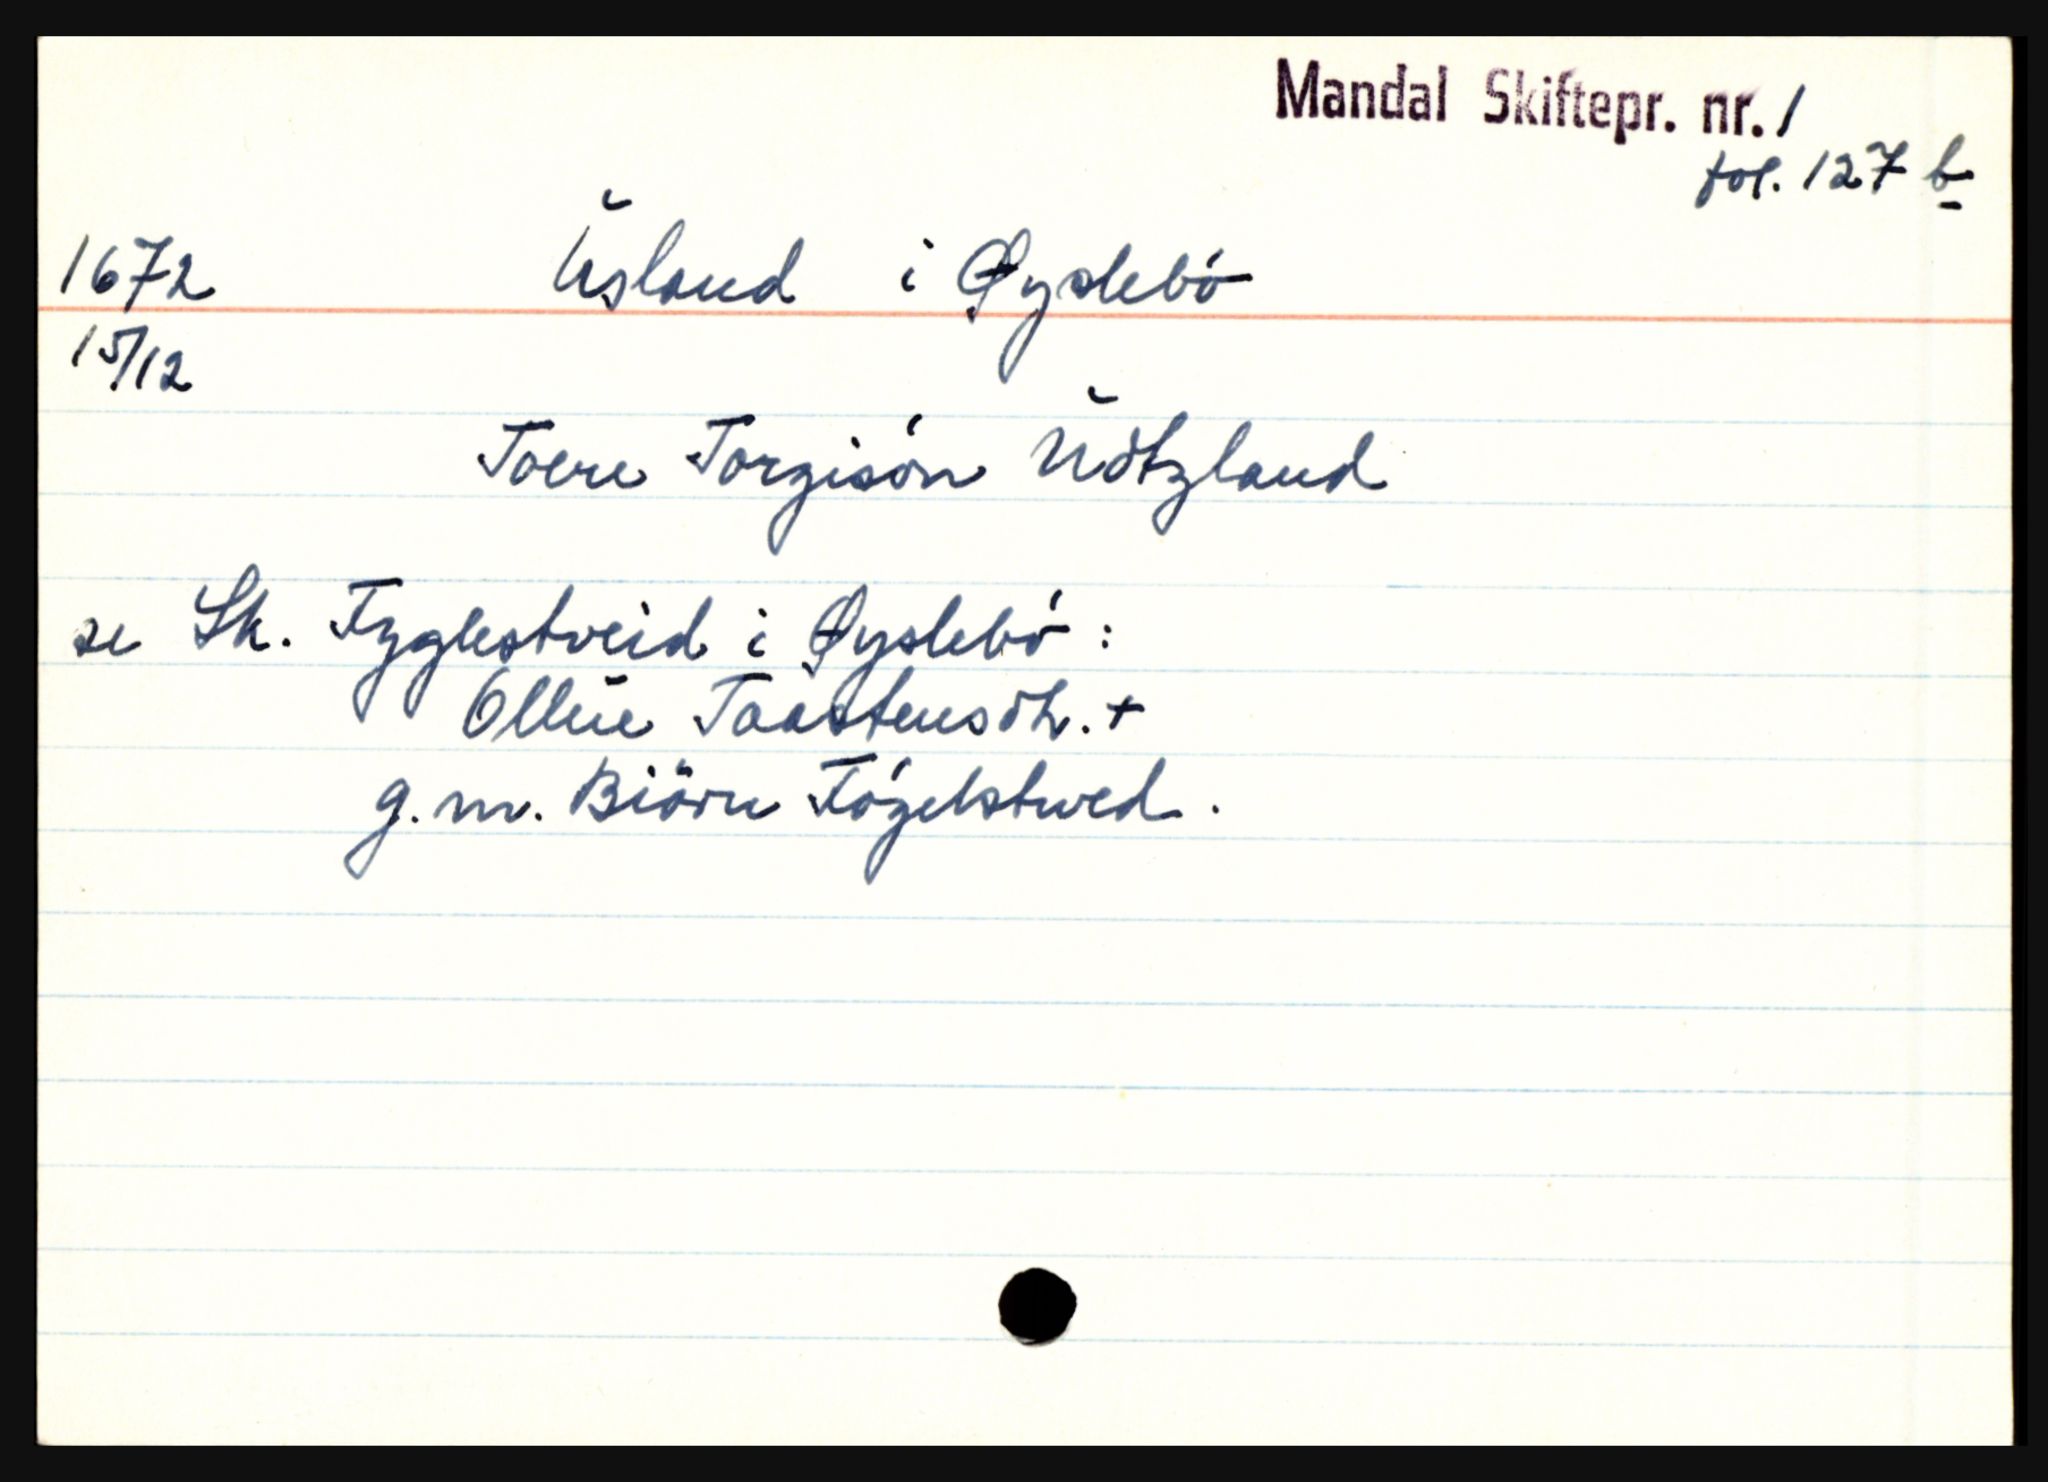 Mandal Skiftepr. nr. 1
fol. 127 b
1672 Usland i Øyslebø
15/12
Toere Torgisøn Udtzland
se Sk. Fyglestveid i Øyslebø:
Ollue Taastensdh. +
g. m. Biörn Føgelstwed.